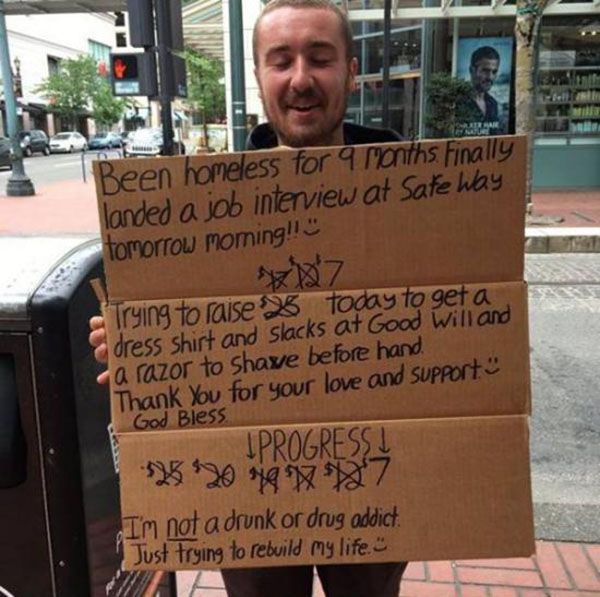 Been homeless for 9 months Finally
landed a job interview at Safe Way
tomorrow morning!!
7
Trying to raise $25 today to get a
dress shirt and slacks at Good Will and
a razor to shave before hand.
Thank You for your love and support.
God Bless
↓PROGRESS↓
$25 $20 $19 $17 $12 7
I'm not a drunk or drug addict.
Just trying to rebuild my life.